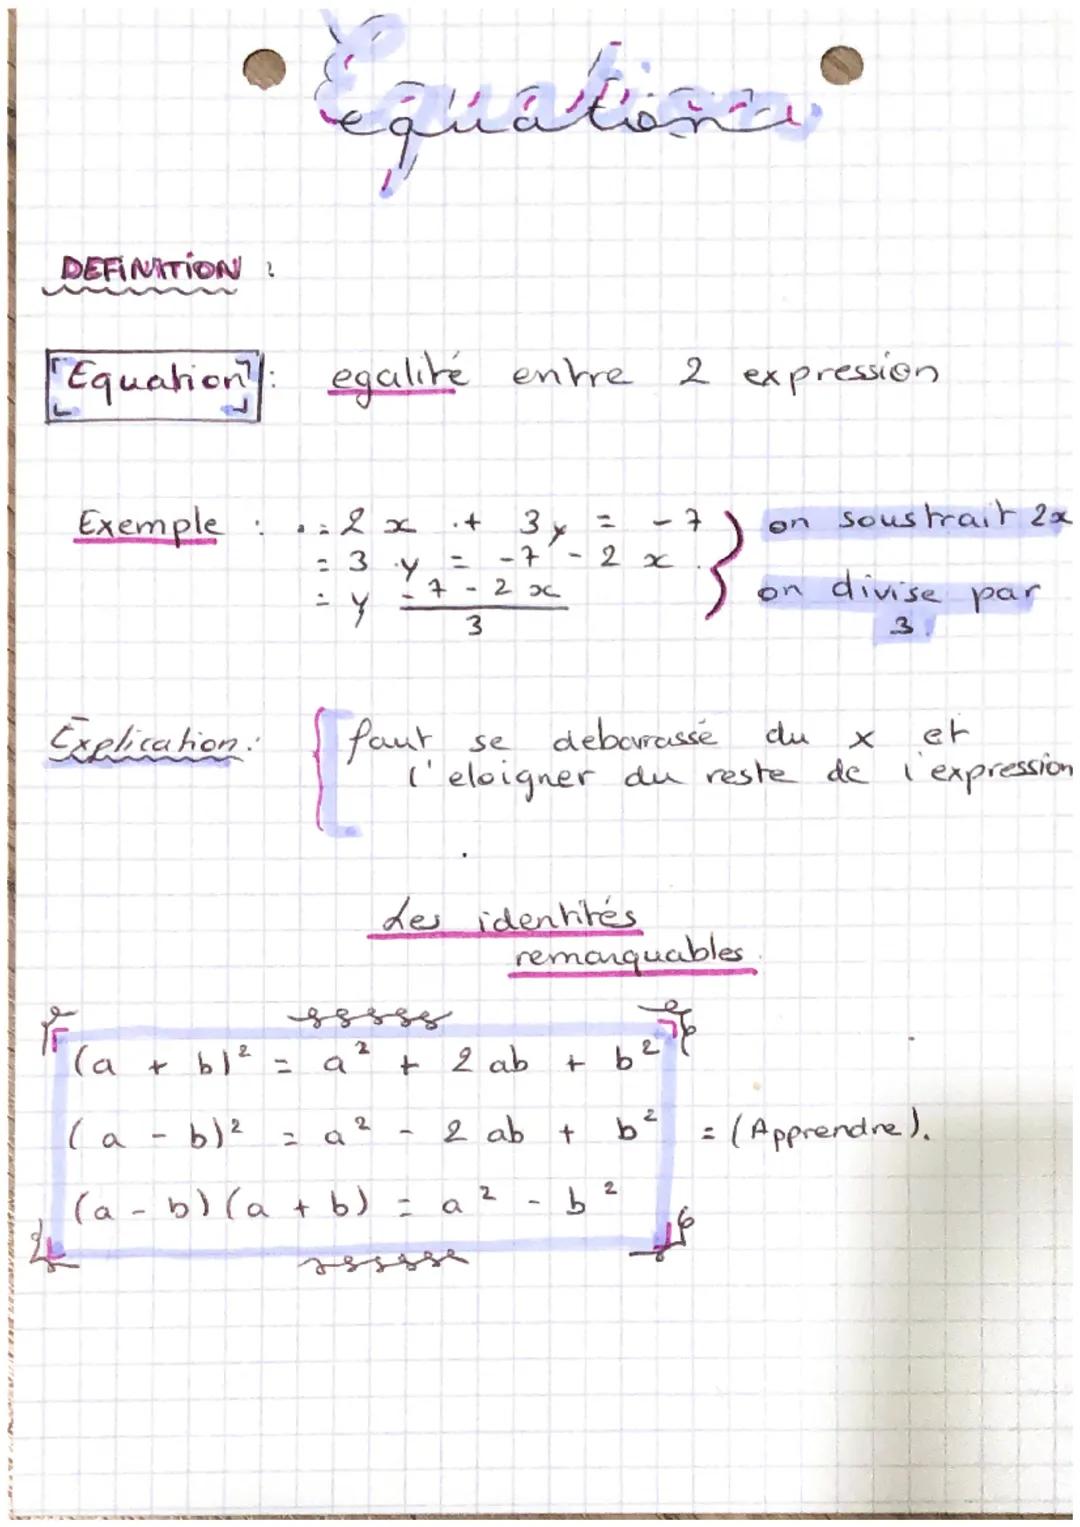 Equation
DEFINITION :
Equation : egalité entre 2 expression
Exemple : 2x + 3y = -7 } on soustrait 2x
= 3y = -7 - 2x
on divise par
= y -7 - 2x
3
3.
Explication : faut se debarassé du x et
l'eloigner du reste de l'expression
Les identités
remarquables.
(a + b)² = a² + 2ab + b²
(a - b)² = a² - 2ab + b² = (Apprendre).
(a - b)(a + b) = a² - b²